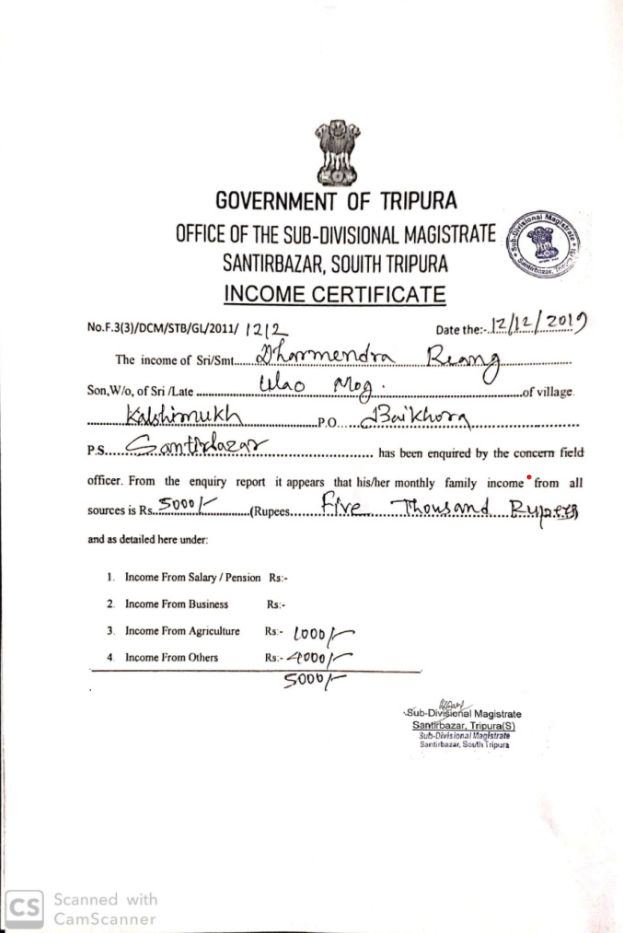 GOVERNMENT OF TRIPURA
OFFICE OF THE SUB-DIVISIONAL MAGISTRATE
SANTIRBAZAR, SOUITH TRIPURA
INCOME CERTIFICATE
Sub-Divisional Magistrate
Santirbazar, Tripura
No.F.3(3)/DCM/STB/GL/2011/ 1212 Date the:- 12/12/2019
The income of Sri/Smt. Dharmendra Reang
Son,W/o, of Sri /Late Ulao Mog. of village.
Kalshimukh P.O. Baikhora
P.S. Santirbazar has been enquired by the concern field
officer. From the enquiry report it appears that his/her monthly family income from all
sources is Rs. 5000/- (Rupees Five Thousand Rupees
and as detailed here under:
1. Income From Salary / Pension Rs:-
2. Income From Business Rs:-
3. Income From Agriculture Rs:- 1000/-
4. Income From Others Rs:- 4000/-
5000/-
Sub-Divisional Magistrate
Santirbazar, Tripura(S)
Sub-Divisional Magistrate
Santirbazar, South Tripura
CS Scanned with
CamScanner